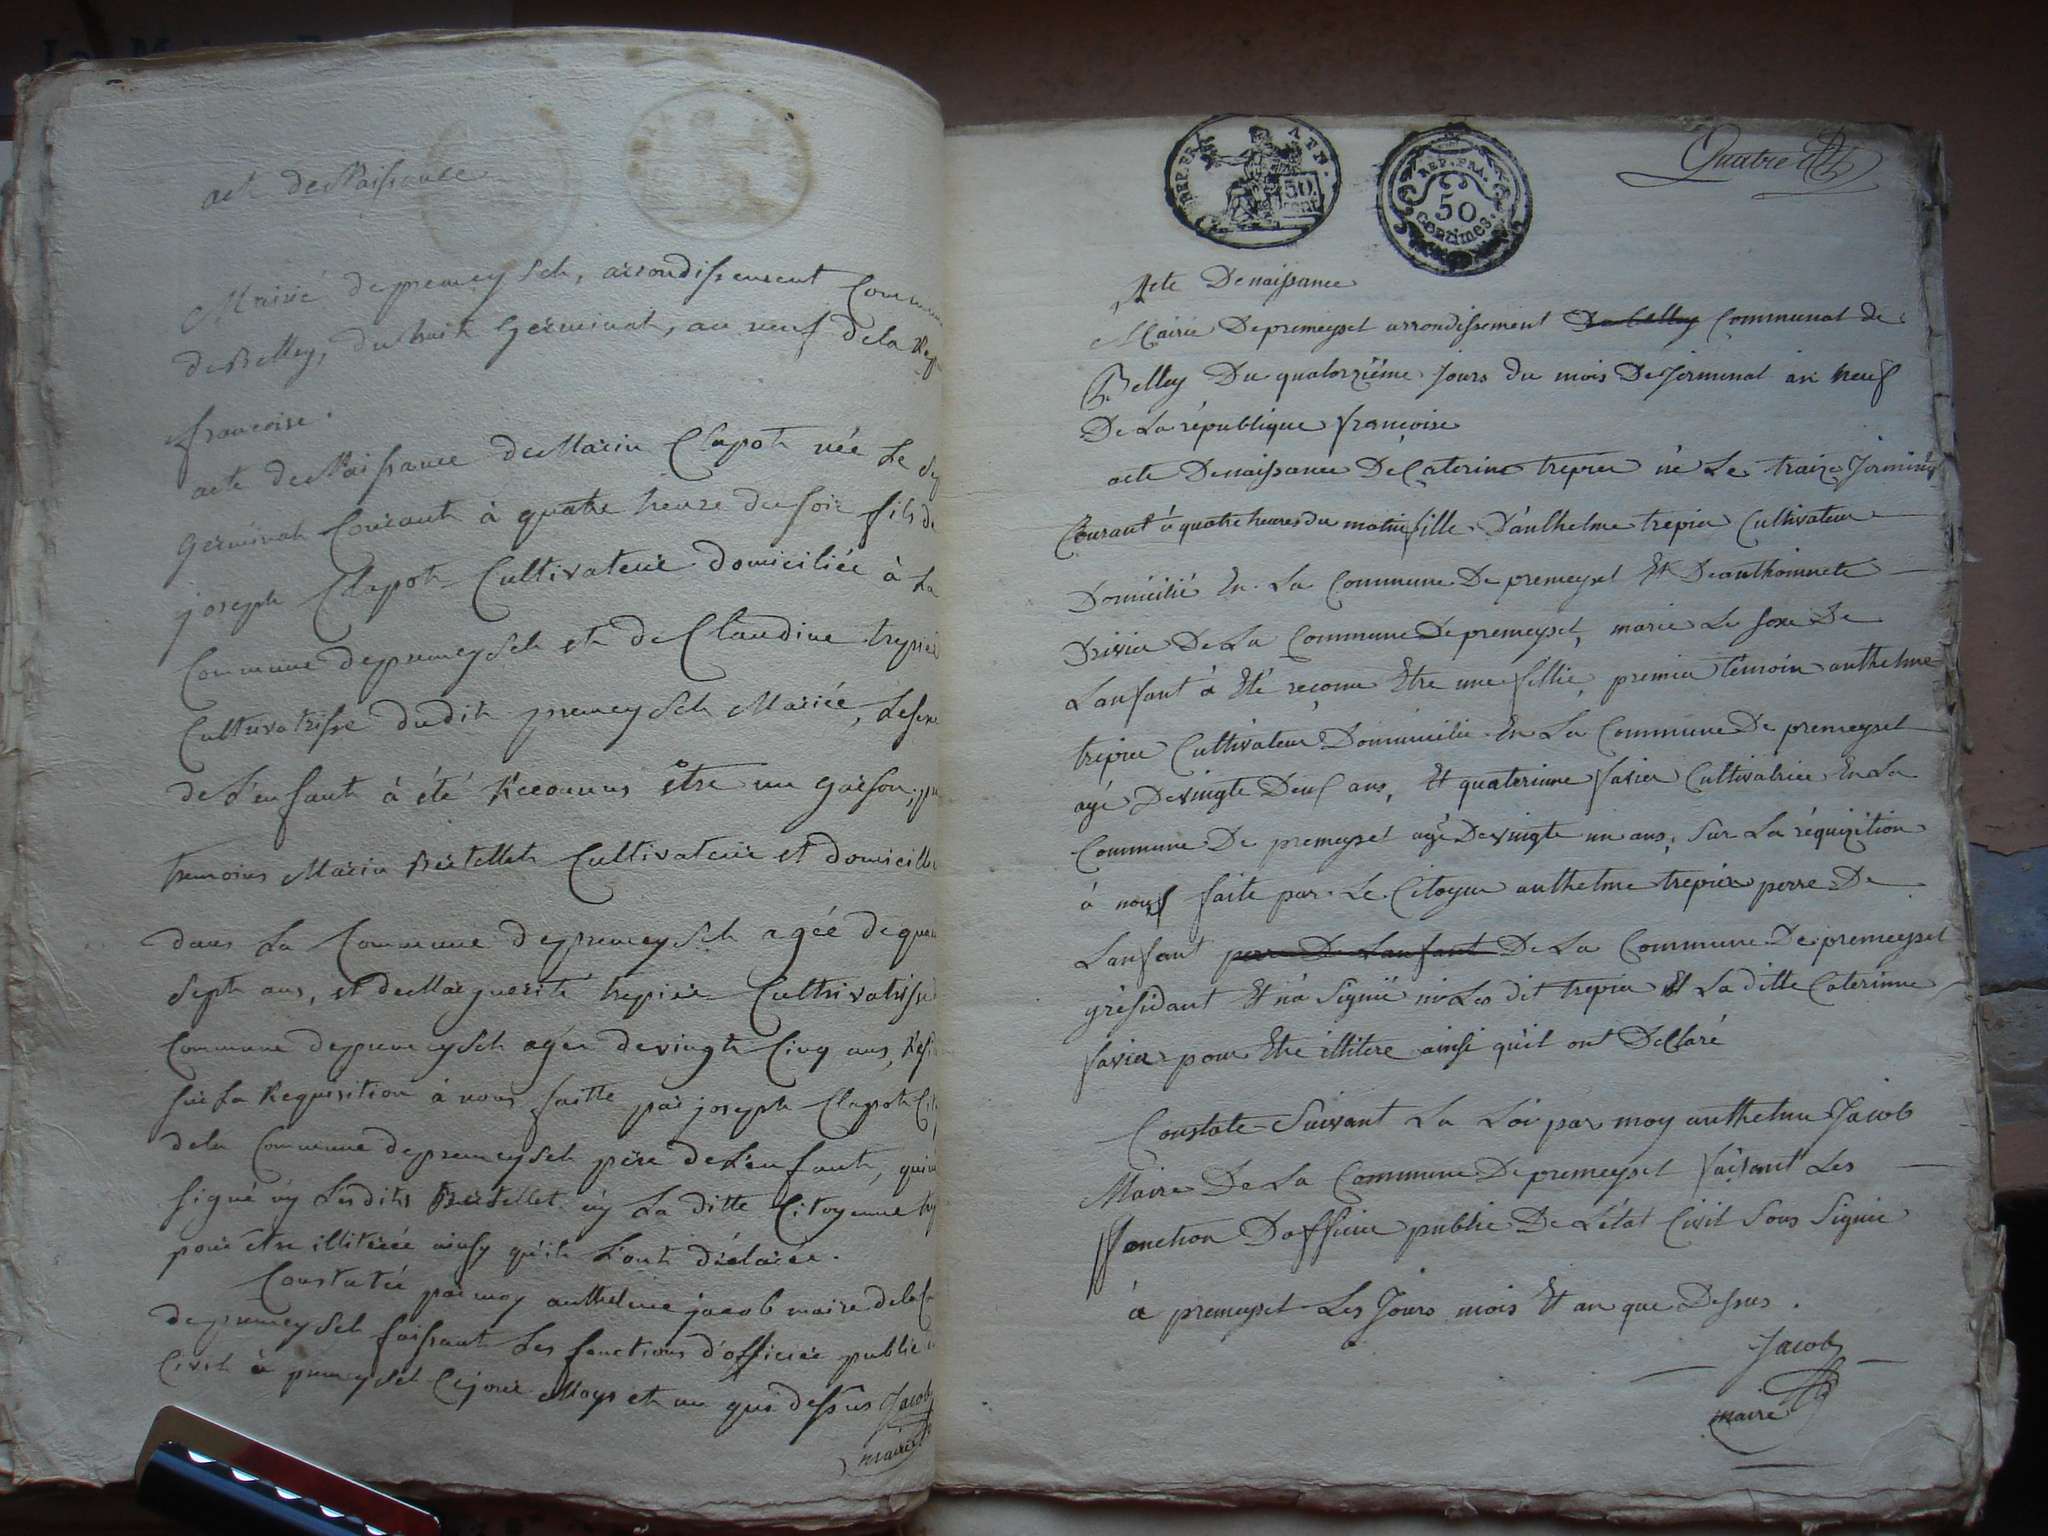 acte de Naissance
Mairie de premeyselt, arrondissement Commun
de Belley, du huit Germinal, an neuf de la Rep
francoise.
acte de Naissance de Marin Clapot née Le
Germinal Courant à quatre heure du soir fils de
joseph Clapot Cultivateur domiciliée à La
Commune de premeyselt et de Claudine trepier
Cultivatrisse dudit premeyselt Mariée, Le sexe
de L'enfant à été Reconnus être un garson,
temoins Marin Bertellet Cultivateur et domicillé
dans La Commune de premeyselt agée de
septs ans, et de Marguerite trepier Cultivatrisse
Commune de premeyselt agée de vingt Cinq ans,
sur La Requisition à nous faitte par joseph Clapot
dela Commune de premeyselt père de L'enfant,
signé ny Lesdits Bertellet ny La ditte Citoyenne
pour etre illiterée ainsy qu'ils L'ont déclarée.
Constatée par moy anthelme jacob maire dela
de premeyselt faissant Les fonctions d'officier public
Civil à premeyselt Ce jour Moys et an que dessus Jacob
maire
REP. FRA.
50
REP. FRA.
50
Centimes.
Quatre
Acte De naissance
Mairie De premeysel arrondissement De Belley Communal de
Belley Du quatorziéme Jours du mois De Jerminal an neuf
De La république francoise
acte De naissance De Caterine trepier né Le traize Jerminal
Courant à quatre heures du matin fille D'anthelme trepier Cultivateur
Domicilié En La Commune De premeysel Et De anthoinnete
Drivier De La Commune De premeysel, marie Le sexe De
Lanfant à Eté reconu Etre une fillie, premier témoin anthelme
trepier Cultivateur Domimicilié En La Commune De premeysel
agé De vingte Deuf ans, Et quaterinne favier Cultivatrice En La
Commune De premeysel agé De vingte un ans, Sur La réquizition
à nous faite par Le Citoyen anthelme trepier perre De
Lanfant perre De Lanfant De La Commune De premeysel
présidant Et n'a Signié ni Les dit trepier Et La ditte Caterinne
favier pour Etre illitere ainsi qu'il ont Déclaré
Constate Suivant La Loi par moy anthelme Jacob
Maire De La Commune De premeysel faisant Les
fonction D'officier public De L'état Civil Sous Signié
à premeysel Les Jours mois Et an que Dessus.
Jacob
maire